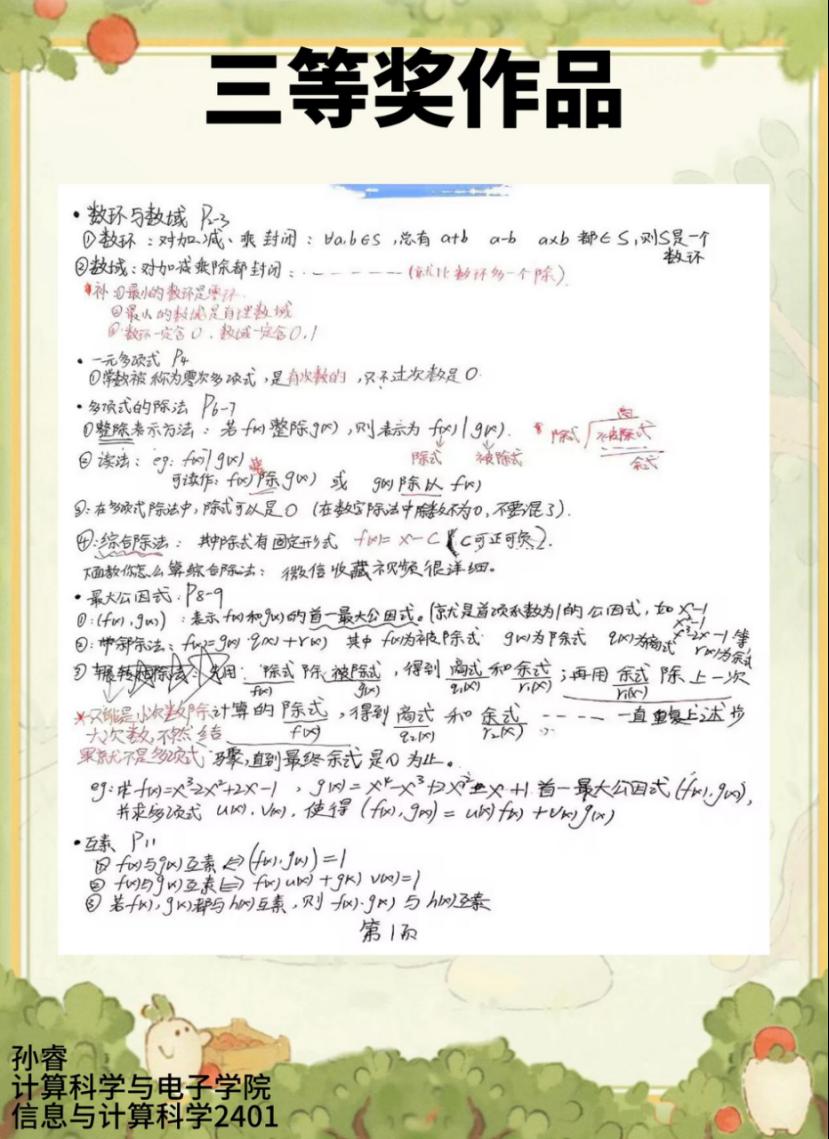 三等奖作品
• 数环与数域 P2-3
①数环：对加、减、乘 封闭：∀a,b∈S，总有 a+b a-b a×b 都∈S，则S是一个
数环
②数域：对加减乘除都封闭：·－－－－－－(就比数环多一个除).
*补：①最小的数环是零环.
②最小的数域是有理数域
③数环一定含0，数域一定含0,1
• 一元多项式 P4
①常数被称为零次多项式，是有次数的，只不过次数是0.
• 多项式的除法 P6-7
①整除表示方法：若f(x)整除g(x)，则表示为 f(x)|g(x).
除式 被除式
* 除式 商 被除式 余式
②读法：eg：f(x)|g(x)
可读作：f(x)除g(x) 或 g(x)除以f(x)
③：在多项式除法中，除式可以是0（在数字除法中除数不为0，不要混了）.
④：综合除法：其中除式有固定形式 f(x)=x-C (C可正可负).
教你怎么算综合除法：微信收藏视频很详细。
• 最大公因式：P8-9
①：(f(x),g(x))：表示f(x)和g(x)的首一最大公因式。(就是首项系数为1的公因式，如 x²-1
x³-2x-1等
②：带余除法：f(x)=g(x)·q(x)+r(x) 其中 f(x)为被除式 g(x)为除式 q(x)为商式 r(x)为余式
③ 辗转相除法：先用 除式 除 被除式，得到 商式 和 余式；再用 余式 除 上一次
f(x) g(x) q₁(x) r₁(x) r₁(x)
计算的 除式，得到 商式 和 余式 －－－－ 一直重复上述步
f(x) q₂(x) r₂(x)
骤，直到最终余式是0为止。
*只能是小次数除
大次数，不然结
果就不是多项式
eg：求f(x)=x³-2x²+2x-1，g(x)=x⁴-x³+2x²-x+1 首一最大公因式(f(x),g(x)),
并求多项式 u(x),v(x)，使得 (f(x),g(x))=u(x)f(x)+v(x)g(x)
• 互素 P11
① f(x)与g(x)互素⇔(f(x),g(x))=1
② f(x)与g(x)互素⇔ f(x)u(x)+g(x)v(x)=1
③ 若f(x),g(x)都与h(x)互素，则 f(x)·g(x)与h(x)互素
第1页
孙睿
计算科学与电子学院
信息与计算科学2401